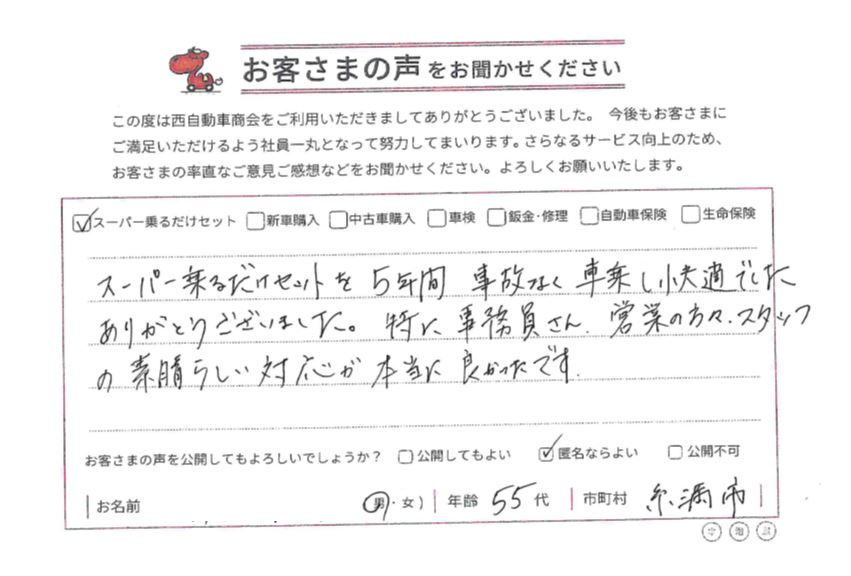 お客さまの声をお聞かせください
この度は西自動車商会をご利用いただきましてありがとうございました。 今後もお客さまに
ご満足いただけるよう社員一丸となって努力してまいります。さらなるサービス向上のため、
お客さまの率直なご意見ご感想などをお聞かせください。よろしくお願いいたします。
スーパー乗るだけセット 新車購入 中古車購入 車検 鈑金・修理 自動車保険 生命保険
スーパー乗るだけセットを 5年間 事故なく 車乗し快適でした
ありがとうございました。 特に 事務員さん、営業の方々、スタッフ
の 素晴らしい対応が 本当に 良かったです。
お客さまの声を公開してもよろしいでしょうか? 公開してもよい 匿名ならよい 公開不可
お名前 男・女) 年齢 55代 市町村 糸満市